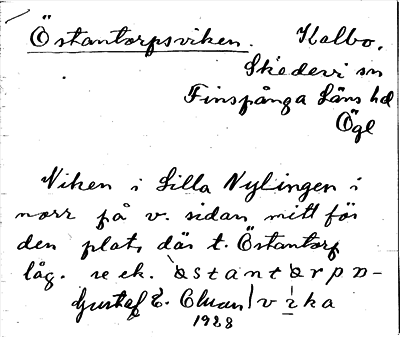 Östantorpsviken. Kolbo.
Skedevi sn
Finspånga Läns hd
Ögl
Viken i Lilla Nylingen i
norr på v. sidan mitt för
den plats där t. Östantorp
låg. se ek.
Gustaf E. vika
1928